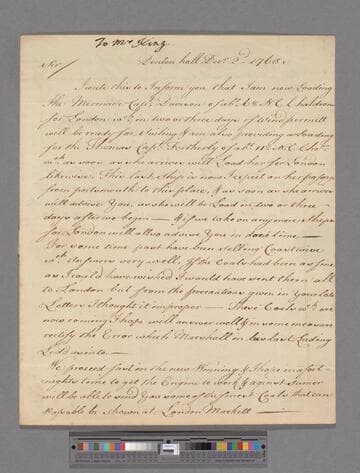 To Mr King
Sir/ Denton hall Decr. 2d. 1765.
I write this to Inform you that I am now Loading
the Mermaid Capt. Davison of abt. 68 N.C. Chaldron
for London wch. in two or three days if Wind permitt
will be ready for Sailing, I am also providing a Loading
for the Thomas Capt. Fortherly of abt. 118 N.C. Chn.
wch. as soon as she arrives will Load her for London
likewise. This last Ship is now I expect on her passage
from portsmouth to this place, & as soon as she arrives
will advise You, as she will be Load in two or three
days after we begin — & if we take on any more Ships
for London will also advise You in due time —
For some time past have been selling Coastwise
wch. Answers very well. If the Coals had been as fine
as I could have wished I would have sent them all
to London but from the precautions given in Your late
Letters I thought it improper — These Coals wch. are
now coming I hope will answer well & in some measure
rectify the Error which Marshall in his last Lading
Ledd us into —
We proceed fast on the new Winning & I hope in a fort-
nights time to get the Engine to work & against Sumer
will be able to send You some of the finest Coals that can
possable be shown at London Markett —